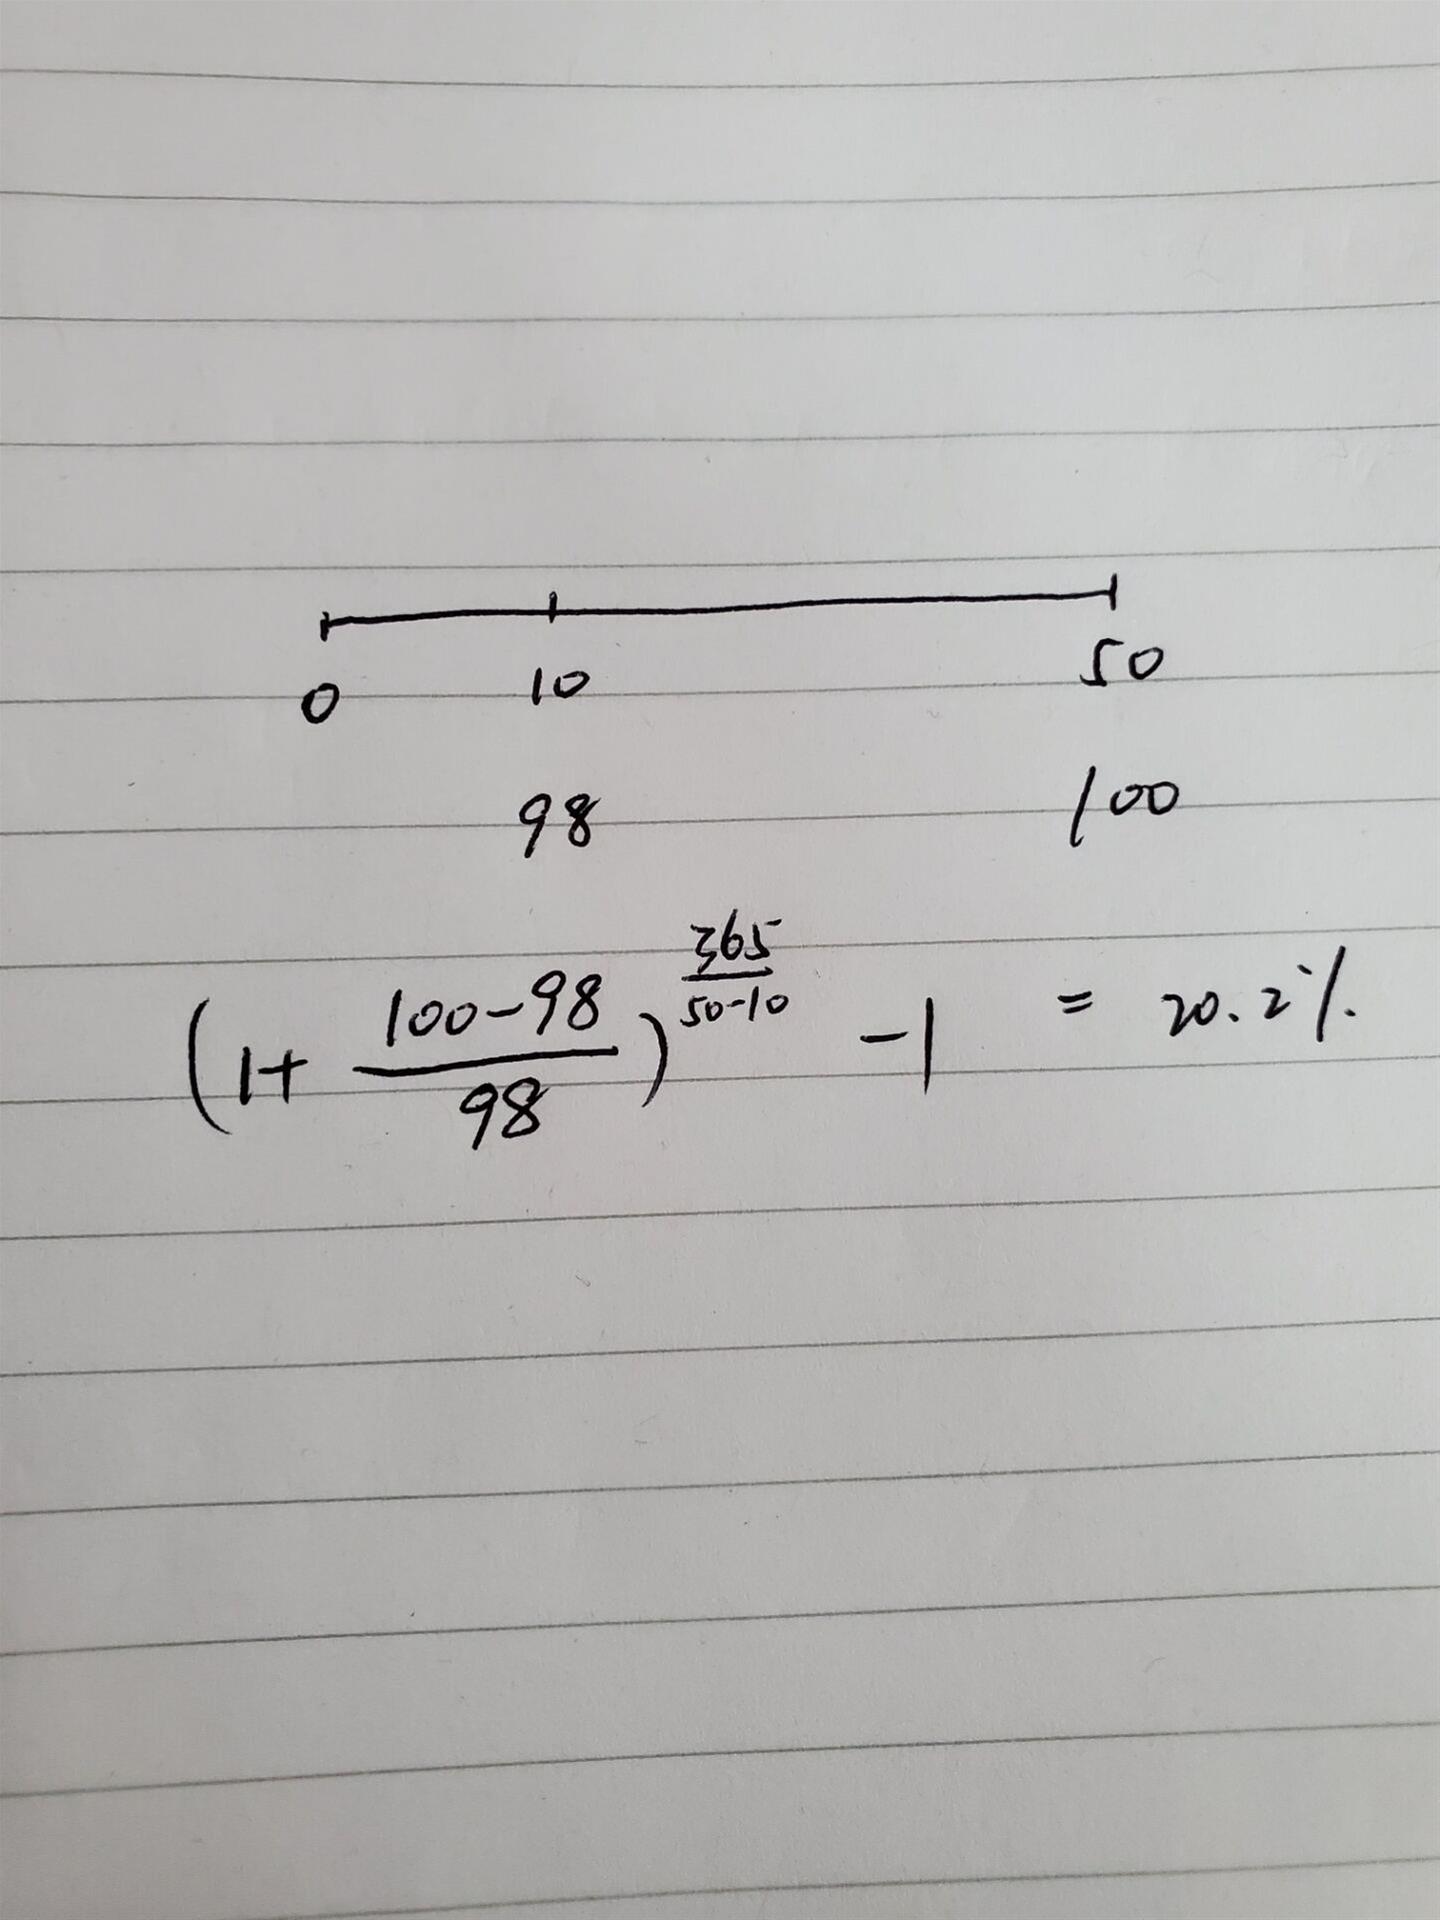 0 10 50
98 100
(1+ \frac{100-98}{98})^{\frac{365}{50-10}} -1 = 20.2%